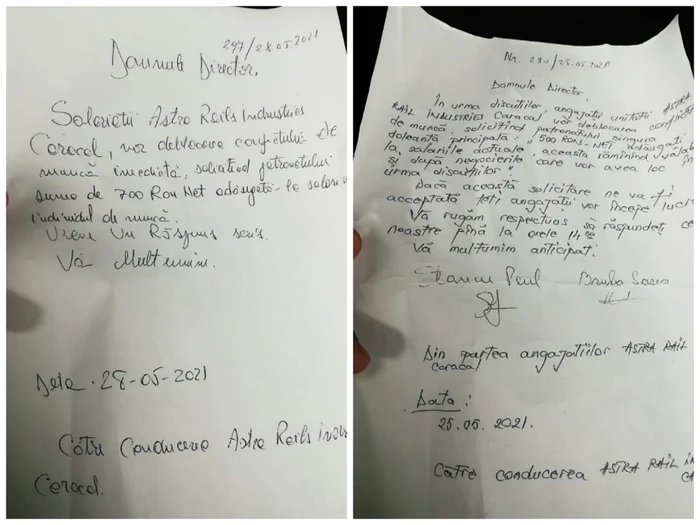 297/28.05.2021
Domnule Director,
Salariații Astra Rails Industries
Caracal, vor deblocarea conflictului de
muncă imediată, solicitînd patronatului
suma de 700 Ron Net adăugată la salariu
individul de muncă.
Vrem Un Răspuns scris.
Vă Mulțumim.
Data. 28-05-2021
Către Conducerea Astra Rails
Caracal.
Nr. 290/25.05.2021
Domnule Director,
În urma discuțiilor, angajații unității ASTRA
RAIL INDUSTRIES Caracal vor deblocarea
de muncă, solicitînd patronatului singura
doleanță principală: "500 RON-NET adăugați
la salariile actuale, aceasta rămînînd
și după negocierile care vor avea loc în
urma discuțiilor"
Dacă această solicitare ne va fi
acceptată toți angajații vor începe
Vă rugăm respectuos să răspundeți
noastre pînă la orele 14
Vă mulțumim anticipat!
Din partea angajaților ASTRA RAIL
caracal
Data:
25.05.2021.
Către conducerea ASTRA RAIL